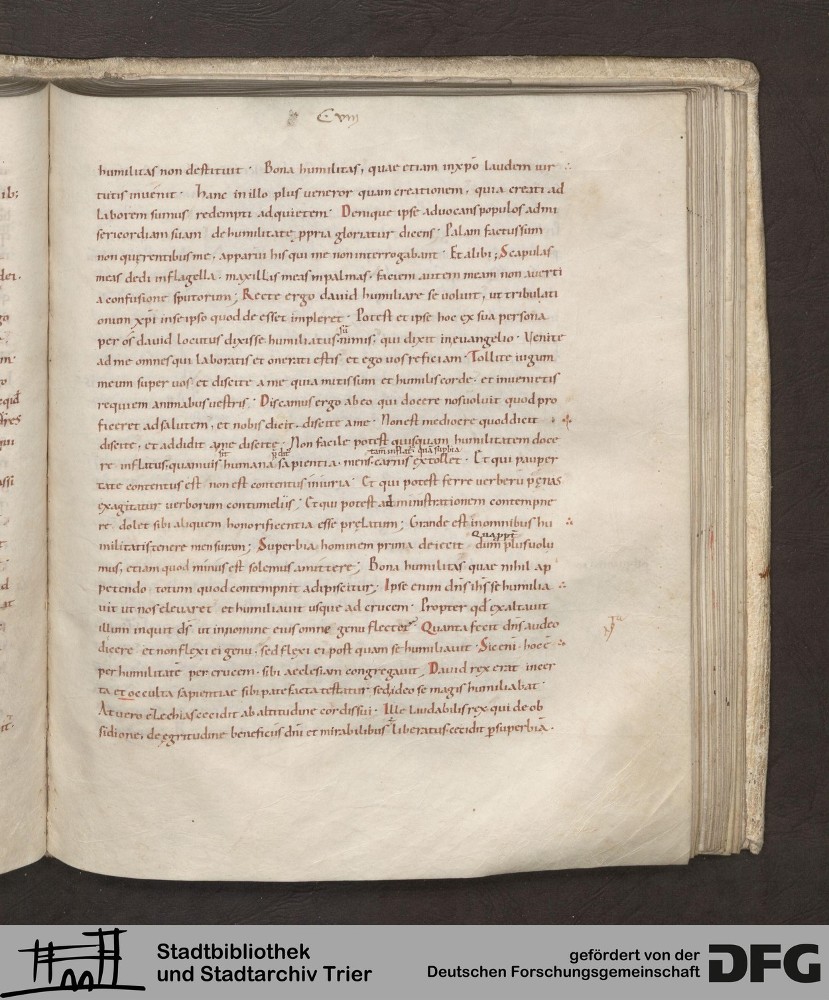 C viii
humilitas non destituit · Bona humilitas, quae etiam inxpo laudem uir
tutis inuenit · hanc inillo plus ueneror quam creationem, quia creati ad
laborem sumus redempti adquietem · Denique ipse aduocans populos admi
sericordiam suam de humilitate ppria gloriatur dicens · Palam factussum
non querentibus me, apparui his qui me non interrogabant · Et alibi; Scapulas
meas dedi inflagella · maxillas meas inpalmas · faciem autem meam non auerti
a confusione sputorum; Recte ergo dauid humiliare se uoluit, ut tribulati
onum xpi inse ipso quod de esset impleret · Potest et ipse hoc ex sua persona
sū
per os dauid locutus dixisse humiliatus nimis, qui dixit ineuangelio · Uenite
ad me omnes qui laboratis et onerati estis et ego uos reficiam · Tollite iugum
meum super uos et discite a me quia mitissum et humilis corde · et inuenietis
requiem animabus uestris · Discamus ergo ab eo qui docere nos uoluit quod pro
ficeret adsalutem, et nobis dicit, discite a me · Non est mediocre quod dicit
discite, et addidit a me discite · Non facile potest quisquam humilitatem doce
re inflatus, quamuis humana sapientia, mens carnis extollet · Et qui pauper
tate contentus est non est contentus iniuria · Et qui potest ferre uerberū penas
exagitatur uerborum contumeliis · Et qui potest administrationem contempne
re dolet sibi aliquem honorificentia esse prelatum; Grande est inomnibus hu
militatis tenere mensuram; Superbia hominem prima deiecit dum plus uolu
mus, etiam quod minus est solemus amittere; Bona humilitas quae nihil ap
petendo totum quod contempnit adipiscitur; Ipse enim dns ihs se humilia
uit ut nos eleuaret et humiliauit usque ad crucem · Propter qd exaltauit
illum inquit ds ut innomine eius omne genu flectet · Quanta fecit dns audeo
dicere et non flexi ei genu, sed flexi ei post quam se humiliauit · Sic eni · hoc
per humilitatē per crucem · sibi aeclesiam congregauit, Dauid rex erat incer
ta et occulta sapientiae sibi pate facta testatur sed ideo se magis humiliabat ·
At uero ezechias cecidit ab altitudine cordis sui · Ille laudabilis rex qui de ob
sidione, de egritudine beneficiis dni et mirabilibus liberatus cecidit p superbiā ·
Stadtbibliothek
und Stadtarchiv Trier
gefördert von der
Deutschen Forschungsgemeinschaft
DFG